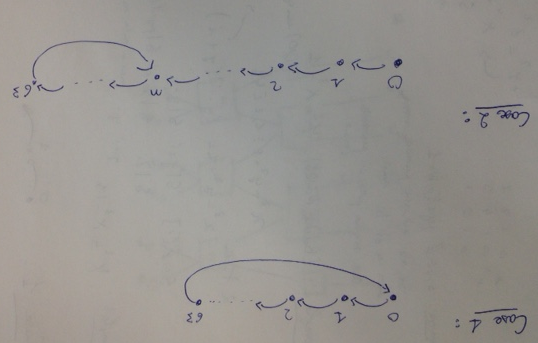 Case 1:
0 1 2 ...... 63
Case 2:
0 1 2 ... m ... 63